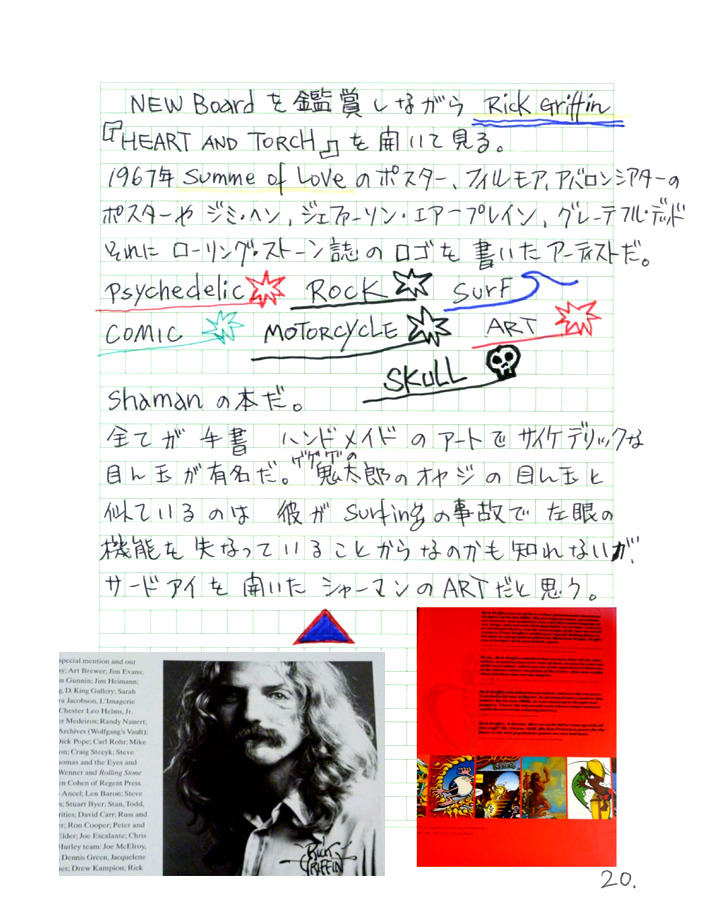 NEW Board を鑑賞しながら Rick Griffin
『HEART AND TORCH』を開いて見る。
1967年 Summe of Love のポスター、フィルモア、アバロンシアターの
ポスターや ジミ・ヘン、ジェファーソン・エアープレイン、グレーテフル・デッド
それに ローリング・ストーン誌のロゴを書いたアーティストだ。
Psychedelic ROCK SURF
COMIC MOTORCYCLE ART
SKULL
shaman の本だ。
全てが手書 ハンドメイドのアートでサイケデリックな
目ん玉が有名だ。ゲゲゲの鬼太郎のオヤジの目ん玉と
似ているのは 彼が Surfingの事故で左眼の
機能を失なっていることからなのかも知れないが
サードアイを開いたシャーマンのARTだと思う。
special mention and our
y: Art Brewer; Jim Evans;
n Gunnin; Jim Heimann;
g, D. King Gallery; Sarah
ra Jacobson, L'Imagerie
Chester Leo Helms, Jr.
er Medeiros; Randy Nauert;
Archives (Wolfgang's Vault);
Dick Pope; Carl Rohr; Mike
on; Craig Stecyk; Steve
homas and the Eyes and
Wenner and Rolling Stone
en Cohen of Regent Press.
Ancel; Len Baron; Steve
s; Stuart Byer; Stan, Todd,
rities; David Carr; Russ and
er; Ron Cooper; Peter and
Elder; Joe Escalante; Chris
Hurley team: Joe McElroy,
, Dennis Green, Jacquelene
es; Drew Kampion, Rick
RICK GRIFFIN
20.